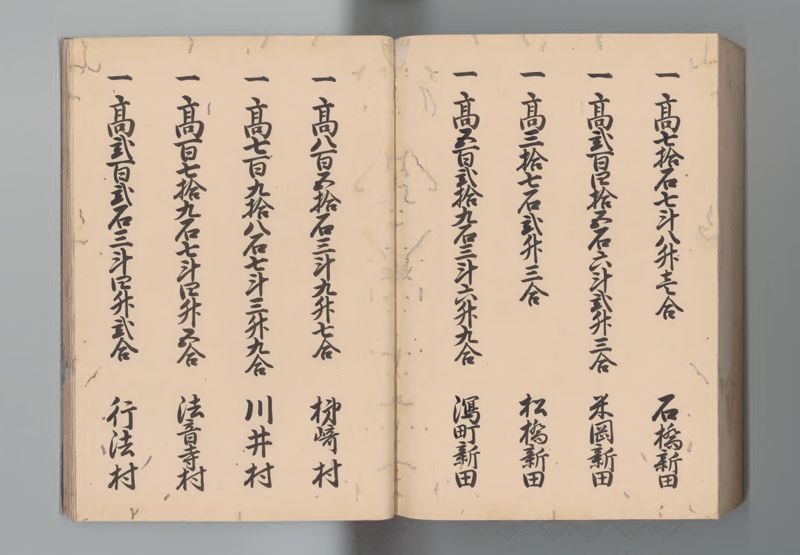 一 高七拾石七斗八升壱合 石橋新田
一 高弐百四拾五石六斗弐升三合 米岡新田
一 高三拾七石弐升三合 松橋新田
一 高五百弐拾九石三斗六升九合 潟町新田
一 高八百五拾石三斗九升七合 柳崎村
一 高七百九拾八石七斗三升九合 川井村
一 高百七拾九石七斗四升五合 法音寺村
一 高弐百弐石三斗四升弐合 行法村